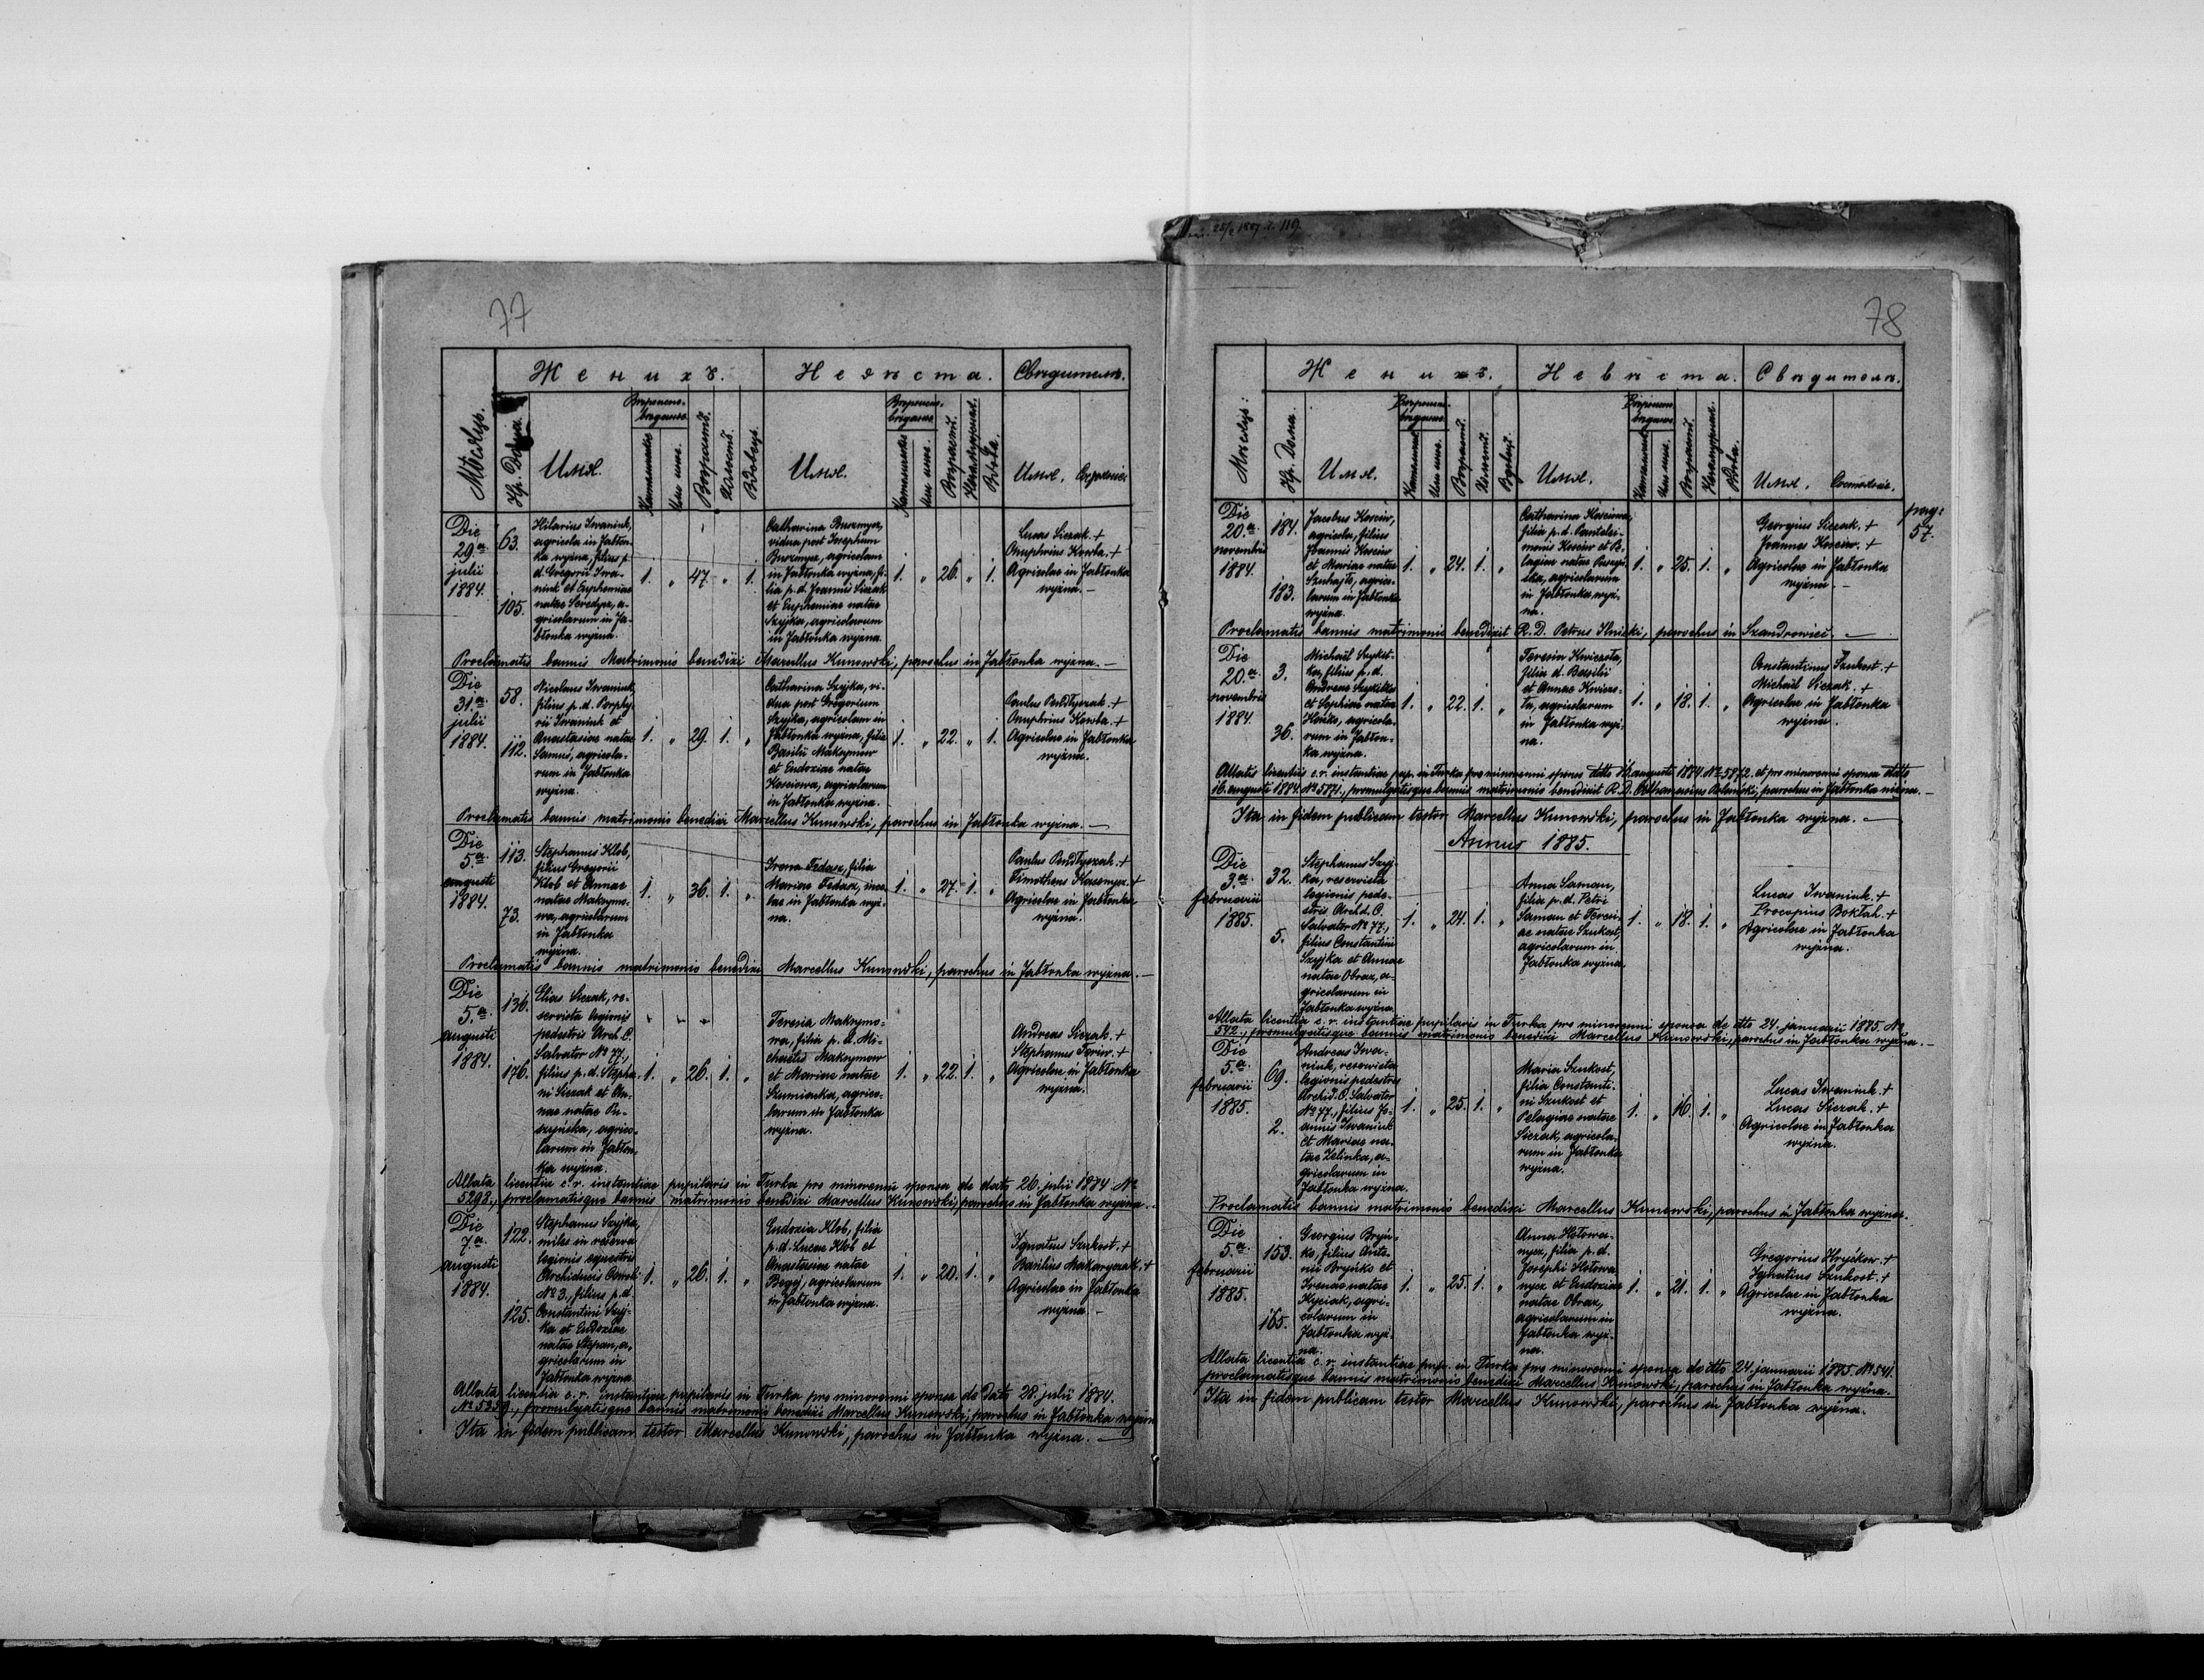 77
Женихъ. Невѣста. Свѣдители.
Мѣсяцъ.
Нр. Дома.
Имя.
Имя.
Имя.
Die
29.a
julii
1884.
63.
105.
Hilarius Iwaniuk,
agricola in Jabłon-
ka wyżna, filius p.
d. Gregorii Iwa-
niuk et Euphemiae
natae Seredycz, a-
gricolarum in Ja-
błonka wyżna.
1. „ 47. „ 1.
Catharina Buczmycz,
vidua post Josephum
Buczmycz, agricolam
in Jabłonka wyżna, fi-
lia p. d. Joannis Siczak
et Euphemiae natae
Szyjka, agricolarum
in Jabłonka wyżna.
1. „ 26. „ 1.
Lucas Siczak +
Onuphrius Kowba. +
Agricolae in Jabłonka
wyżna. –
Proclamatis bannis Matrimonio benedixi Marcellus Kunowski, parochus in Jabłonka wyżna. —
Die
31.a
julii
1884.
58.
112.
Nicolaus Iwaniuk,
filius p. d. Porphy-
rii Iwaniuk et
Anastasiae natae
Samuś, agricola-
rum in Jabłonka
wyżna.
1. „ 29. 1. „
Catharina Szyjka, vi-
dua post Gregorium
Szyjka, agricolam in
Jabłonka wyżna, filia
Basilii Maksymow
et Eudoxiae natae
Kosciowa, agricolarum
in Jabłonka wyżna.
1. „ 22. „ 1.
Paulus Pendłyszak. +
Onuphrius Kowba. +
Agricolae in Jabłonka
wyżna.
Proclamatis bannis matrimonio benedixi Marcellus Kunowski, parochus in Jabłonka wyżna. —
Die
5.a
augusti
1884.
113.
73.
Stephanus Klob,
filius Gregorii
Klob et Annae
natae Maksymo-
wa, agricolarum
in Jabłonka
wyżna.
1. „ 36. 1. „
Irena Fedasz, filia
Mariae Fedasz, inco-
lae in Jabłonka wyż-
na.
1. „ 27. 1. „
Paulus Pendłyszak. +
Timotheus +
Agricolae in Jabłonka
wyżna.
Proclamatis bannis matrimonio benedixi Marcellus Kunowski, parochus in Jabłonka wyżna. —
Die
5.a
augusti
1884.
136.
176.
Elias Siczak, re-
servista legionis
pedestris Arch. C.
Salvator No 77.,
filius p. d. Stepha-
ni Siczak et An-
nae natae Pu-
szyńska, agrico-
larum in Jabłon-
ka wyżna.
1. „ 26. 1. „
Teresia Maksymo-
wa, filia p. d. Mi-
chaelis Maksymow
et Mariae natae
Szumianka, agrico-
larum in Jabłonka
wyżna.
1. „ 22. 1. „
Andreas Siczak. +
Stephanus +
Agricolae in Jabłonka
wyżna.
Allata licentia c. r. instantiae pupilaris in Turka pro minorenni sponsa de dato 26. julii 1874 No
5293., proclamatisque bannis matrimonio benedixi Marcellus Kunowski, parochus in Jabłonka wyżna.
Die
7.a
augusti
1884.
122.
125.
Stephanus Szyjka,
miles in reserva
legionis equestris
Archiducis Caroli
No 3., filius p. d.
Constantini Szyj-
ka et Eudoxiae
natae Stepan, a-
gricolarum in
Jabłonka wyżna
1. „ 26. 1. „
Eudoxia Klob, filia
p. d. Lucae Klob et
Anastasiae natae
Begej, agricolarum
in Jabłonka wyżna.
1. „ 20. 1. „
Ignatius Szukost. +
Basilius Makaryszak. +
Agricolae in Jabłonka
wyżna. –
Allata licentia c. r. instantiae pupilaris in Turka pro minorenni sponsa de dato 28. julii 1884.
No promulgatisque bannis matrimonio benedixi Marcellus Kunowski, parochus in Jabłonka wyżna
Ita in fidem publicam testor Marcellus Kunowski, parochus in Jabłonka wyżna. —
78
Женихъ. Невѣста. Свѣдители.
Мѣсяцъ:
Нр. Дома.
Имя.
Имя.
Имя.
pag:
57.
Die
20.a
novembris
1884.
184.
183.
Jacobus Kosciw,
agricola, filius
Joannis Kosciw
et Mariae natae
Szuhajte, agrico-
larum in Jabłonka
wyżna.
1. „ 24. 1. „
Catharina Kosciowa,
filia p. d. Pantelei-
monis Kosciw et Pe-
lagiae natae Puszyń-
ska, agricolarum
in Jabłonka wyż-
na.
1. „ 25. 1. „
Georgius Siczak. +
Joannes Kosciw. +
Agricolae in Jabłonka
wyżna. –
Proclamatis bannis matrimonio benedixit R. D. Petrus Ilnicki, parochus in Szandrowiec. —
Die
20.a
novembris
1884.
3.
36.
Michaël Szykit-
ka, filius p. d.
Andreae Szykitka
et Sophiae natae
agricola-
rum in Jabłon-
ka wyżna.
1. „ 22. 1. „
Teresia Kwiczota,
filia d. Basilii
et Annae Kwiczo-
ta, agricolarum
in Jabłonka wyż-
na.
1. „ 18. 1. „
Constantinus Szukost. +
Michaël Siczak. +
Agricolae in Jabłonka
wyżna.
Allatis licentiis c. r. instantiae pup. in Turka pro minorenni sponso ddto 16. augusti 1884 No 5872. et pro minorenni sponsa ddto
16. augusti 1884 No 5871., promulgatisque bannis matrimonio benedixit R. D. Athanasius parochus in Jabłonka niżna. –
Ita in fidem publicam testor Marcellus Kunowski, parochus in Jabłonka wyżna. —
Annus 1885.
Die
3.a
februarii
1885.
32.
5.
Stephanus Szyj-
ka, reservista
legionis pede-
stris Archd. C.
Salvator No 77.,
filius Constantini
Szyjka et Annae
natae Obraz, a-
gricolarum in
Jabłonka wyżna.
1. „ 24. 1. „
Anna Saman,
filia p. d. Petri
Saman et Teresi-
ae natae Szukost,
agricolarum in
Jabłonka wyżna.
1. „ 18. 1. „
Lucas Iwaniuk. +
Procopius Boktał. +
Agricolae in Jabłonka
wyżna.
Allata licentia c. r. instantiae pupilaris in Turka pro minorenni sponsa de dto 24. januarii 1885. No
542., promulgatisque bannis matrimonio benedixi Marcellus Kunowski, parochus in Jabłonka wyżna. –
Die
5.a
februarii
1885.
69.
2.
Andreas Iwa-
niuk, reservista
legionis pedestris
Archid. C. Salvator
No 77., filius Jo-
annis Iwaniuk
et Mariae na-
tae Zelinka, a-
gricolarum in
Jabłonka wyżna.
1. „ 25. 1. „
Maria Szukost,
filia Constanti-
ni Szukost et
Pelagiae natae
Siczak, agricola-
rum in Jabłonka
wyżna.
1. „ 16. 1. „
Lucas Iwaniuk. +
Lucas Siczak. +
Agricolae in Jabłonka
wyżna.
Proclamatis bannis matrimonio benedixi Marcellus Kunowski, parochus in Jabłonka wyżna.
Die
5.a
februarii
1885.
153.
165.
Georgius Bryń-
ko, filius Anto-
nii Bryńko et
Irenae natae
Kyciak, agri-
colarum in
Jabłonka wyż-
na.
1. „ 25. 1. „
Anna Hołowa-
nycz, filia p. d.
Josephi Hołowa
nycz et Eudoxiae
natae Obraz,
agricolarum in
Jabłonka wyż-
na.
1. „ 21. 1. „
Gregorius Hryćkow. +
Ignatius Szukost. +
Agricolae in Jabłonka
wyżna.
Allata licentia c. r. instantiae pup. in Turka pro minorenni sponsa de dto 24. januarii 1885. No 541.
proclamatisque bannis matrimonio benedixi Marcellus Kunowski, parochus in Jabłonka wyżna.
Ita in fidem publicam testor Marcellus Kunowski, parochus in Jabłonka wyżna.